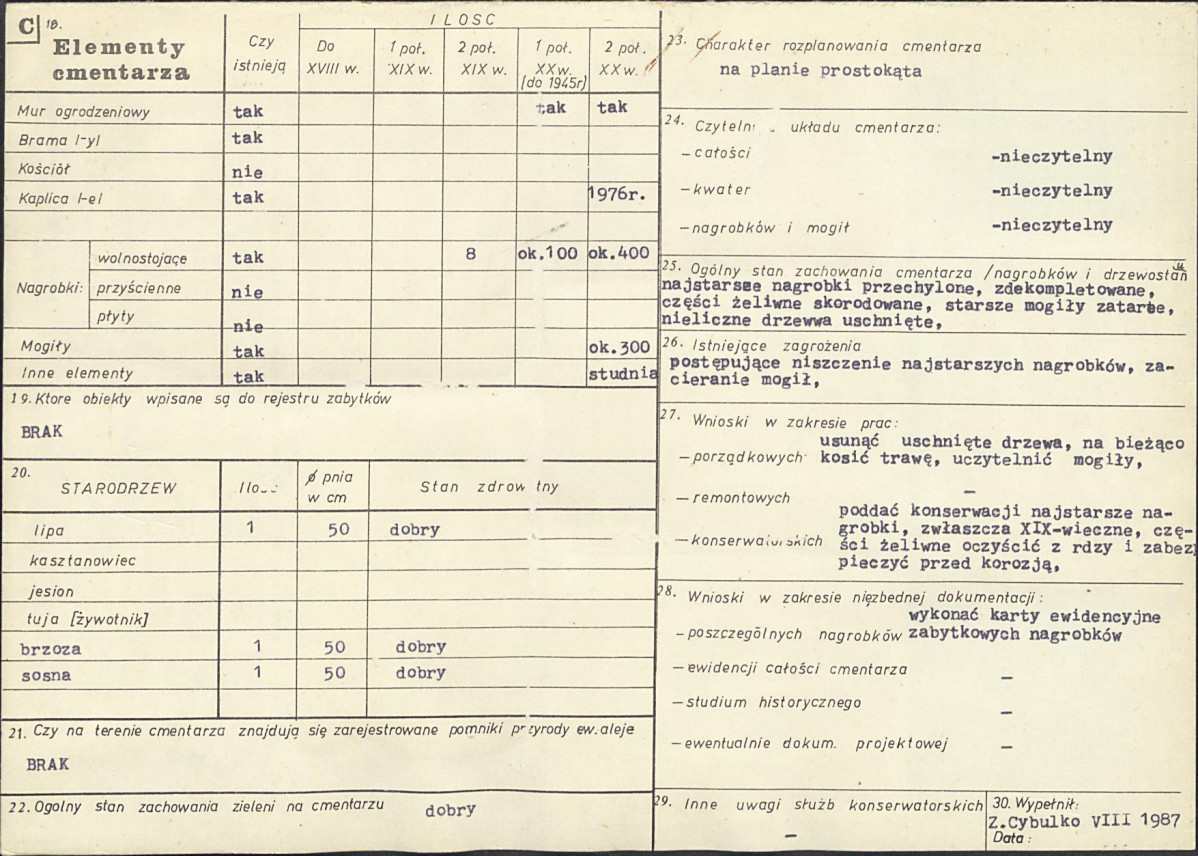 C 18.
Elementy
cmentarza
Czy
istnieją
ILOSC
Do
XVIII w.
1 poł.
XIX w.
2 poł.
XIX w.
1 poł.
XX w.
(do 1945r)
2 poł.
XX w.
Mur ogrodzeniowy tak tak tak
Brama /-y/ tak
Kościół nie
Kaplica /-e/ tak 1976r.
Nagrobki: wolnostojące tak 8 ok.100 ok.400
przyścienne nie
płyty nie
Mogiły tak ok.300
Inne elementy tak studnia
19. Ktore obiekty wpisane są do rejestru zabytków
BRAK
20. STARODRZEW Ilość ϕ pnia w cm Stan zdrowotny
lipa 1 50 dobry
kasztanowiec
jesion
tuja [żywotnik]
brzoza 1 50 dobry
sosna 1 50 dobry
21. Czy na terenie cmentarza znajdują się zarejestrowane pomniki przyrody ew.aleje
BRAK
22. Ogolny stan zachowania zieleni na cmentarzu dobry
23. Charakter rozplanowania cmentarza
na planie prostokąta
24. Czyteln układu cmentarza:
– całości -nieczytelny
– kwater -nieczytelny
– nagrobków i mogił -nieczytelny
25. Ogólny stan zachowania cmentarza /nagrobków i drzewostanu
najstarsze nagrobki przechylone, zdekompletowane,
części żeliwne skorodowane, starsze mogiły zatarte,
nieliczne drzewwa uschnięte,
26. Istniejące zagrożenia
postępujące niszczenie najstarszych nagrobków, za-
cieranie mogił,
27. Wnioski w zakresie prac:
usunąć uschnięte drzewa, na bieżąco
– porządkowych kosić trawę, uczytelnić mogiły,
– remontowych –
poddać konserwacji najstarsze na-
grobki, zwłaszcza XIX-wieczne, czę-
– konserwatorskich ści żeliwne oczyścić z rdzy i zabez
pieczyć przed korozją,
28. Wnioski w zakresie nięzbednej dokumentacji:
wykonać karty ewidencyjne
– poszczególnych nagrobków zabytkowych nagrobków
– ewidencji całości cmentarza –
– studium historycznego –
– ewentualnie dokum. projektowej –
29. Inne uwagi służb konserwatorskich
–
30. Wypełnił:
Z.Cybulko VIII 1987
Data: